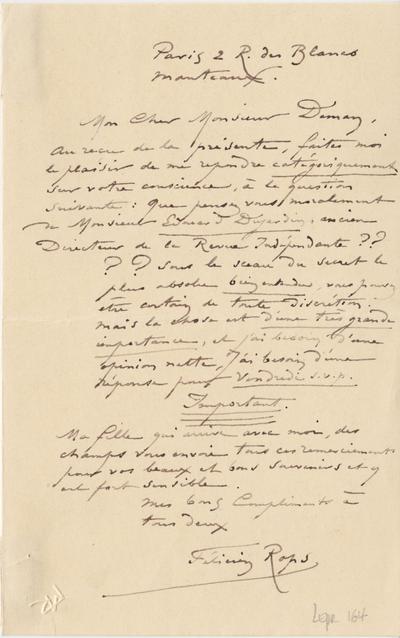 Paris 2 R. des Blancs
Manteaux.
Mon Cher Monsieur Deman,
Au reçu de la présente, faites moi
le plaisir de me repondre catégoriquement
sur votre conscience, à la question
suivante : que pensez vous moralement
de Monsieur Edouard Dujardin, ancien
Directeur de la Revue Indépendante ??
?? Sous le sceau du secret le
plus absolu bien entendu, vous pouvez
être certain de toute discrétion.
mais la chose est d'une très grande
importance, et j'ai besoin d'une
opinion nette, J'ai besoin d'une
réponse pour Vendredi s.v.p.
Important.
Ma fille qui arrive avec moi, des
champs vous envoie tous ses remerciements
pour vos beaux et bons souvenirs et y
est fort sensible.
Mes bons Compliments à
tous deux
Félicien Rops
Lepr 164